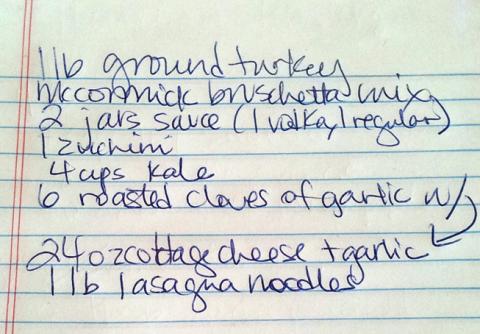 1 lb ground turkey
McCormick bruschetta mix
2 jars sauce (1 vodka, 1 regular)
1 zuchini
4 cups kale
6 roasted cloves of garlic w/
24 oz cottage cheese + garlic
1 lb lasagna noodles